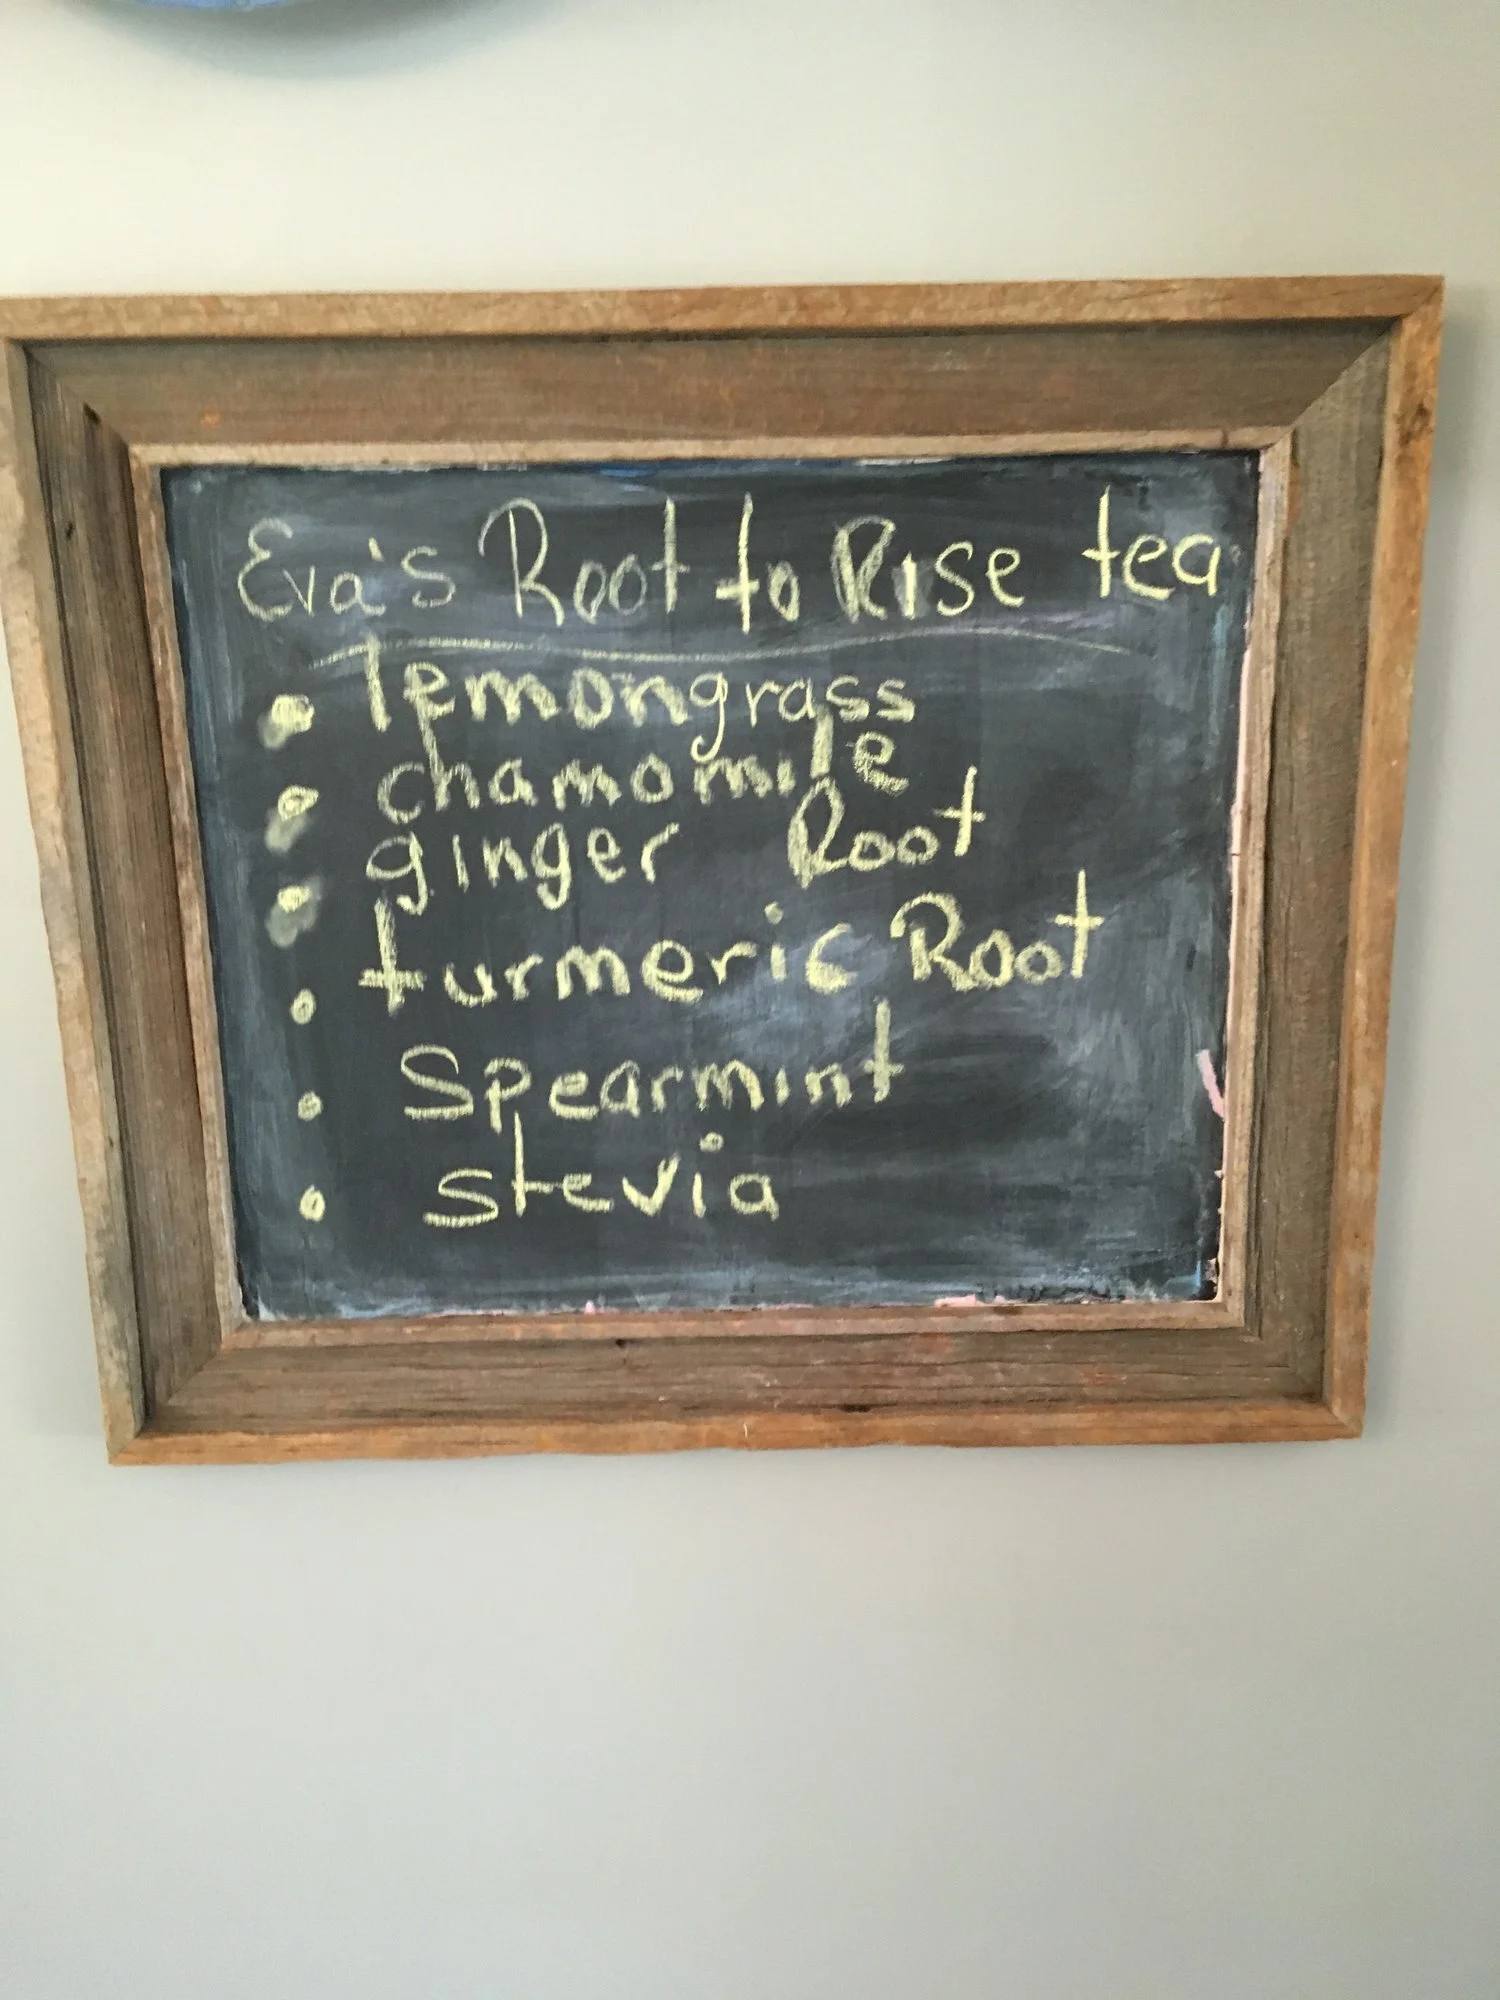 Eva's Root to Rise tea
• lemongrass
• chamomile
• ginger Root
• turmeric Root
• Spearmint
• stevia